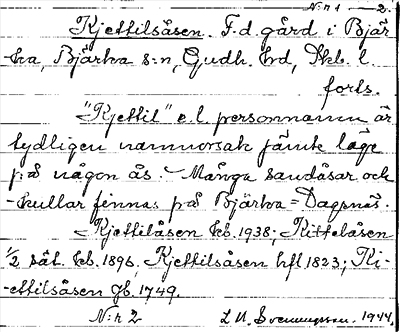 N:r 1 — 2.
Kjettilsåsen. F.d. gård i Bjär
ka, Bjärka s:n, Gudh. hd, Skb. l.
forts.
"Kjettil" e.l. personnamn är
tydligen namnorsak jämte läge
på någon ås. Många sandåsar och
-kullar finnas på Bjärka = Dagsnäs.
Kjettilåsen kb. 1938; Kittelåsen
1/2 sät. kb. 1896, Kjettilsåsen hfl 1823; Ki-
-ettilsåsen gb. 1749.
N:r 2
L.M. Svenungsson. 1944.